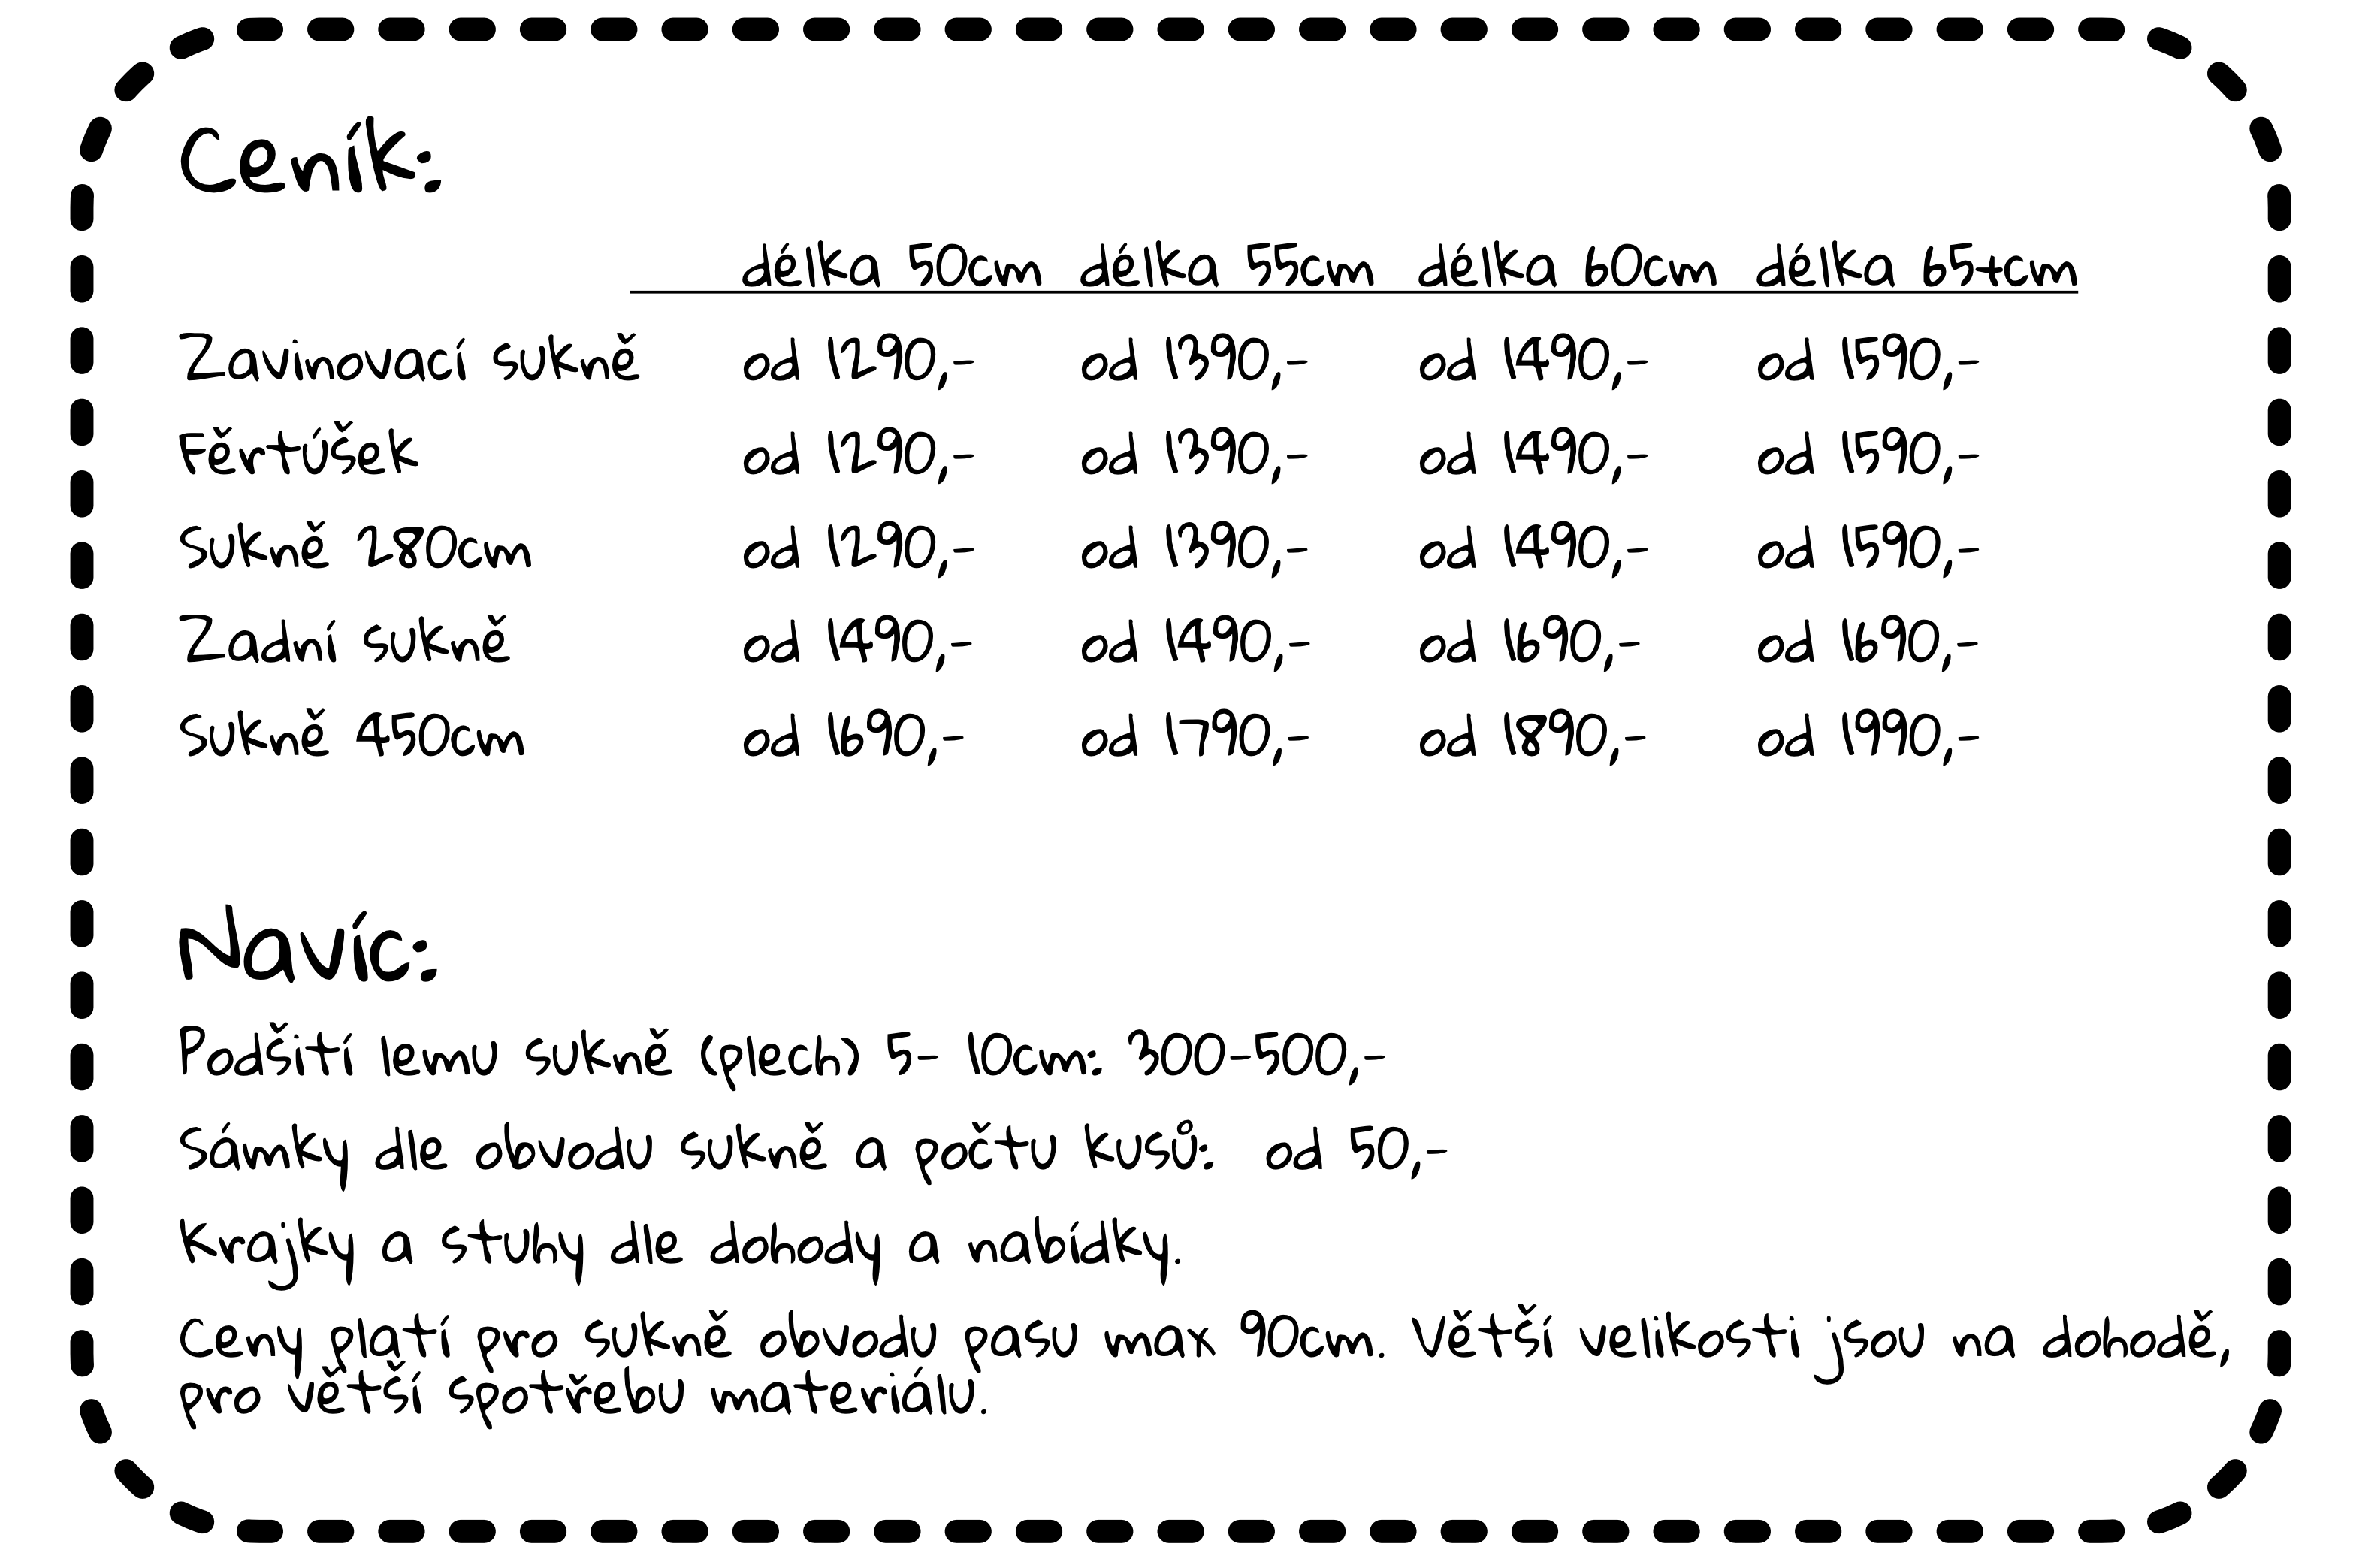 Ceník:
délka 50cm délka 55cm délka 60cm délka 65+cm
Zavinovací sukně od 1290,- od 1390,- od 1490,- od 1590,-
Fěrtúšek od 1290,- od 1390,- od 1490,- od 1590,-
Sukně 280cm od 1290,- od 1390,- od 1490,- od 1590,-
Zadní sukně od 1490,- od 1490,- od 1690,- od 1690,-
Sukně 450cm od 1690,- od 1790,- od 1890,- od 1990,-
Navíc:
Podšití lemu sukně (plech) 5- 10cm: 300-500,-
Sámky dle obvodu sukně a počtu kusů: od 50,-
Krajky a stuhy dle dohody a nabídky.
Ceny platí pro sukně obvodu pasu max 90cm. Větší velikosti jsou na dohodě,
pro větší spotřebu materiálu.